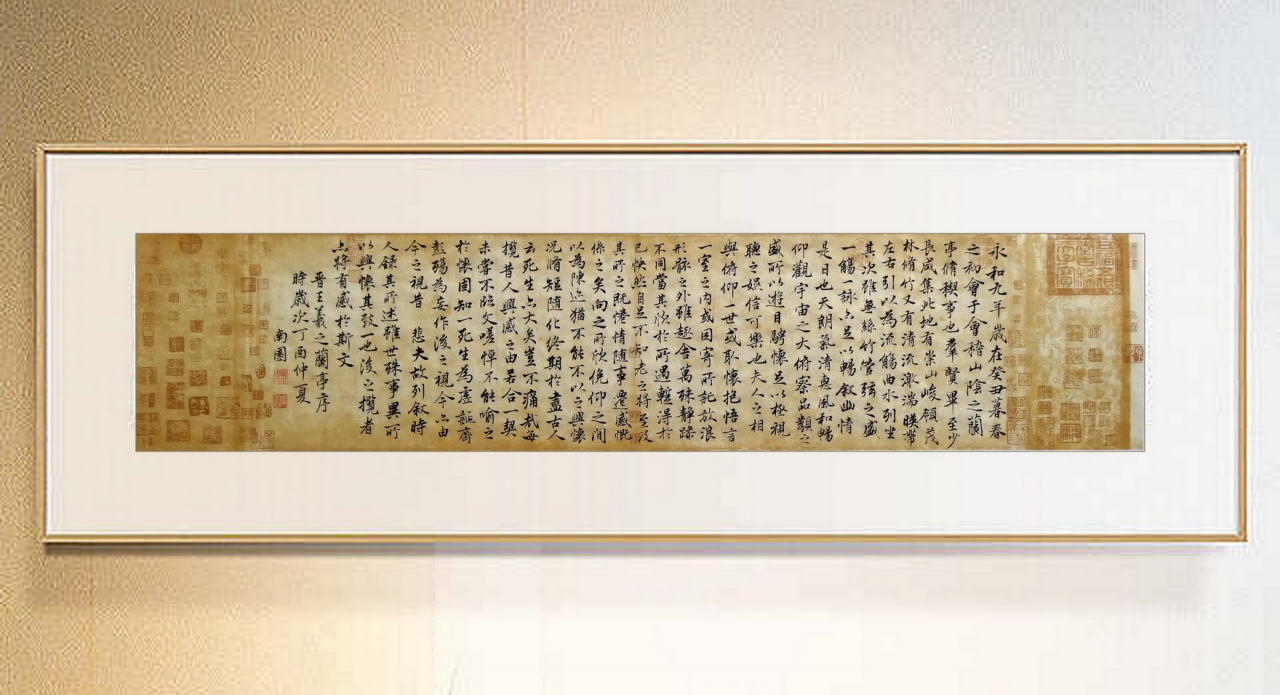 永和九年歲在癸丑暮春
之初會于會稽山陰之蘭
亭脩稧事也羣賢畢至少
長咸集此地有崇山峻領茂
林脩竹又有清流激湍暎帶
左右引以為流觴曲水列坐
其次雖無絲竹管弦之盛
一觴一詠亦足以暢敘幽情
是日也天朗氣清惠風和暢
仰觀宇宙之大俯察品類之
盛所以遊目騁懷足以極視
聽之娛信可樂也夫人之相
與俯仰一世或取懷抱悟言
一室之內或因寄所託放浪
形骸之外雖趣舍萬殊靜躁
不同當其欣於所遇蹔得於
己怏然自足不知老之將至及
其所之既惓情隨事遷感慨
係之矣向之所欣俛仰之間
以為陳迹猶不能不以之興懷
況脩短隨化終期於盡古人
云死生亦大矣豈不痛哉每
攬昔人興感之由若合一契
未嘗不臨文嗟悼不能喻之
於懷固知一死生為虛誕齊
彭殤為妄作後之視今亦由
今之視昔 悲夫故列敘時
人錄其所述雖世殊事異所
以興懷其致一也後之攬者
亦將有感於斯文
晉王羲之蘭亭序
時歲次丁酉仲夏
南